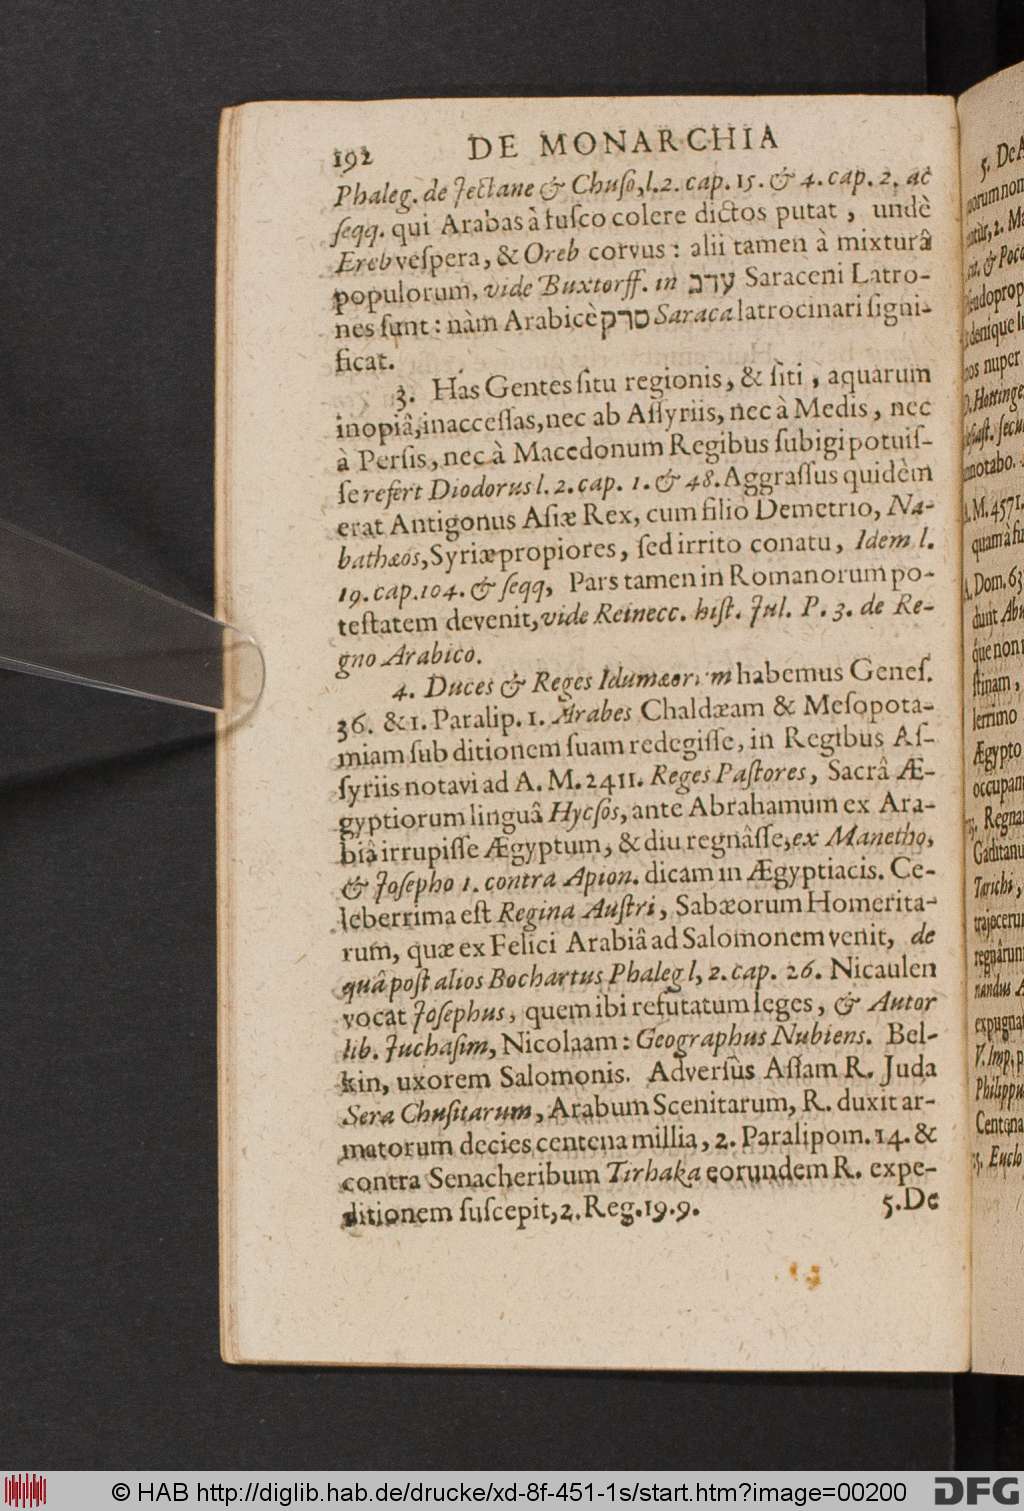 192 DE MONARCHIA
Phaleg. de Jectane & Chuso, l. 2. cap. 15. & 4. cap. 2. ac
seqq. qui Arabas à fusco colere dictos putat, undè
Ereb vespera, & Oreb corvus: alii tamen à mixturâ
populorum, vide Buxtorff. in ערב Saraceni Latro-
nes sunt: nàm Arabicè סרק Saraca latrocinari signi-
ficat.
3. Has Gentes situ regionis, & siti, aquarum
inopiâ, inaccessas, nec ab Assyriis, nec à Medis, nec
à Persis, nec à Macedonum Regibus subigi potuis-
se refert Diodorus l. 2. cap. 1. & 48. Aggrassus quidèm
erat Antigonus Asiæ Rex, cum filio Demetrio, Na-
bathæos, Syriæ propiores, sed irrito conatu, Idem l.
19. cap. 104. & seqq, Pars tamen in Romanorum po-
testatem devenit, vide Reinecc. hist. Jul. P. 3. de Re-
gno Arabico.
4. Duces & Reges Idumæorum habemus Genes.
36. & 1. Paralip. 1. Arabes Chaldæam & Mesopota-
miam sub ditionem suam redegisse, in Regibus As-
syriis notavi ad A. M. 2411. Reges Pastores, Sacrâ Æ-
gyptiorum linguâ Hycsos, ante Abrahamum ex Ara-
biâ irrupisse Ægyptum, & diu regnâsse, ex Manetho,
& Josepho 1. contra Apion. dicam in Ægyptiacis. Ce-
leberrima est Regina Austri, Sabæorum Homerita-
rum, quæ ex Felici Arabiâ ad Salomonem venit, de
quâ post alios Bochartus Phaleg l, 2. cap. 26. Nicaulen
vocat Josephus, quem ibi refutatum leges, & Autor
lib. Juchasim, Nicolaam: Geographus Nubiens. Bel-
kin, uxorem Salomonis. Adversùs Assam R. Juda
Sera Chusitarum, Arabum Scenitarum, R. duxit ar-
matorum decies centena millia, 2. Paralipom. 14. &
contra Senacheribum Tirhaka eorundem R. expe-
ditionem suscepit, 2. Reg. 19. 9. 5. De
5. De
A. M. 4571.
quam à
A. Dom.
dunt
que non
stinam,
lerrimo
Ægypto
occupan
Regna
Gaditanu
Tarichi,
trajecerun
regnârunt
nandus
expugnat
V. Imp.
Philippu
Centena
© HAB http://diglib.hab.de/drucke/xd-8f-451-1s/start.htm?image=00200
DFG